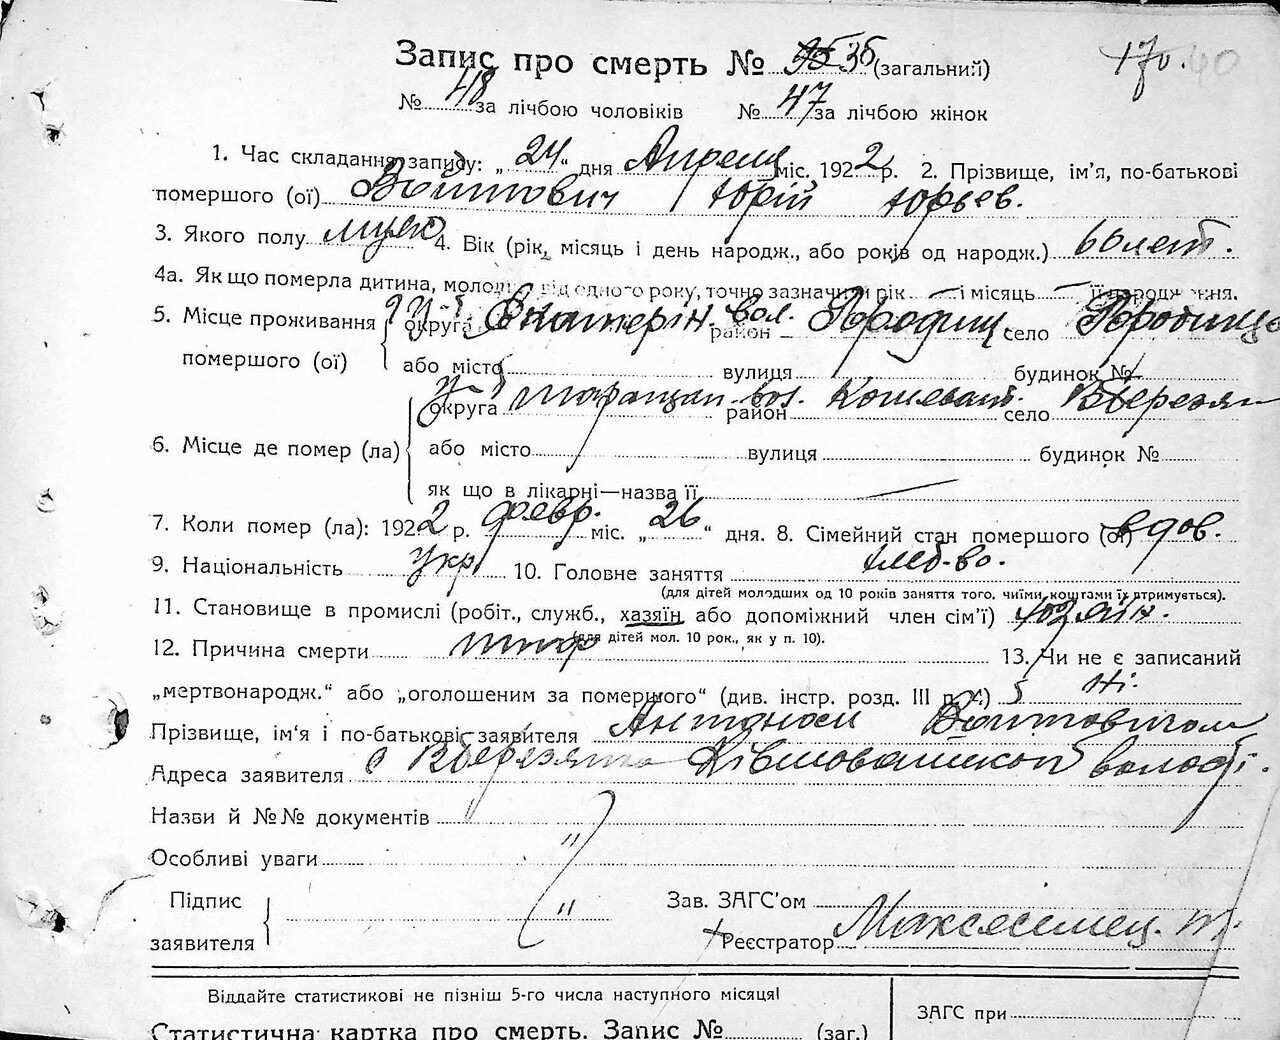 Запис про смерть № 35 (загальний)
№ 48 за лічбою чоловіків № 47 за лічбою жінок
1. Час складання запису: „ 24 “ дня Апреля міс. 1922 р. 2. Прізвище, ім'я, по-батькові
помершого (ої) Войтович Юрій Юрьев.
3. Якого полу муж 4. Вік (рік, місяць і день народж., або років од народж.) 60 лет.
4а. Як що померла дитина, молодша від одного року, точно зазначити рік і місяць її народження.
5. Місце проживання округа Екатерін. вол. район Городищ село Городище
помершого (ої) або місто вулиця будинок №
округа Таращан. вол. район Кошеват. село Бберезян
6. Місце де помер (ла) або місто вулиця будинок №
як що в лікарні—назва її
7. Коли помер (ла): 1922 р. февр. міс. „ 26 “ дня. 8. Сімейний стан помершого (ої) вдов.
9. Національність укр 10. Головне заняття хлеб-во.
(для дітей молодших од 10 років заняття того, чиїми коштами їх втримується).
11. Становище в промислі (робіт., служб., хазяїн або допоміжний член сім'ї) хозяйн.
(для дітей мол. 10 рок., як у п. 10).
12. Причина смерти тиф 13. Чи не є записаний
„мертвонародж.“ або „оголошеним за помершого“ (див. інстр. розд. III п. ) Ні.
Прізвище, ім'я і по-батькові заявителя Антонаси Войтовичом
Адреса заявителя с Бберезянка Ківшоватской волості.
Назви й №№ документів
Особливі уваги "
Підпис Зав. ЗАГС'ом
заявителя " Реєстратор
Віддайте статистикові не пізніш 5-го числа наступного місяця!
ЗАГС при
Статистична картка про смерть. Запис № (заг.)